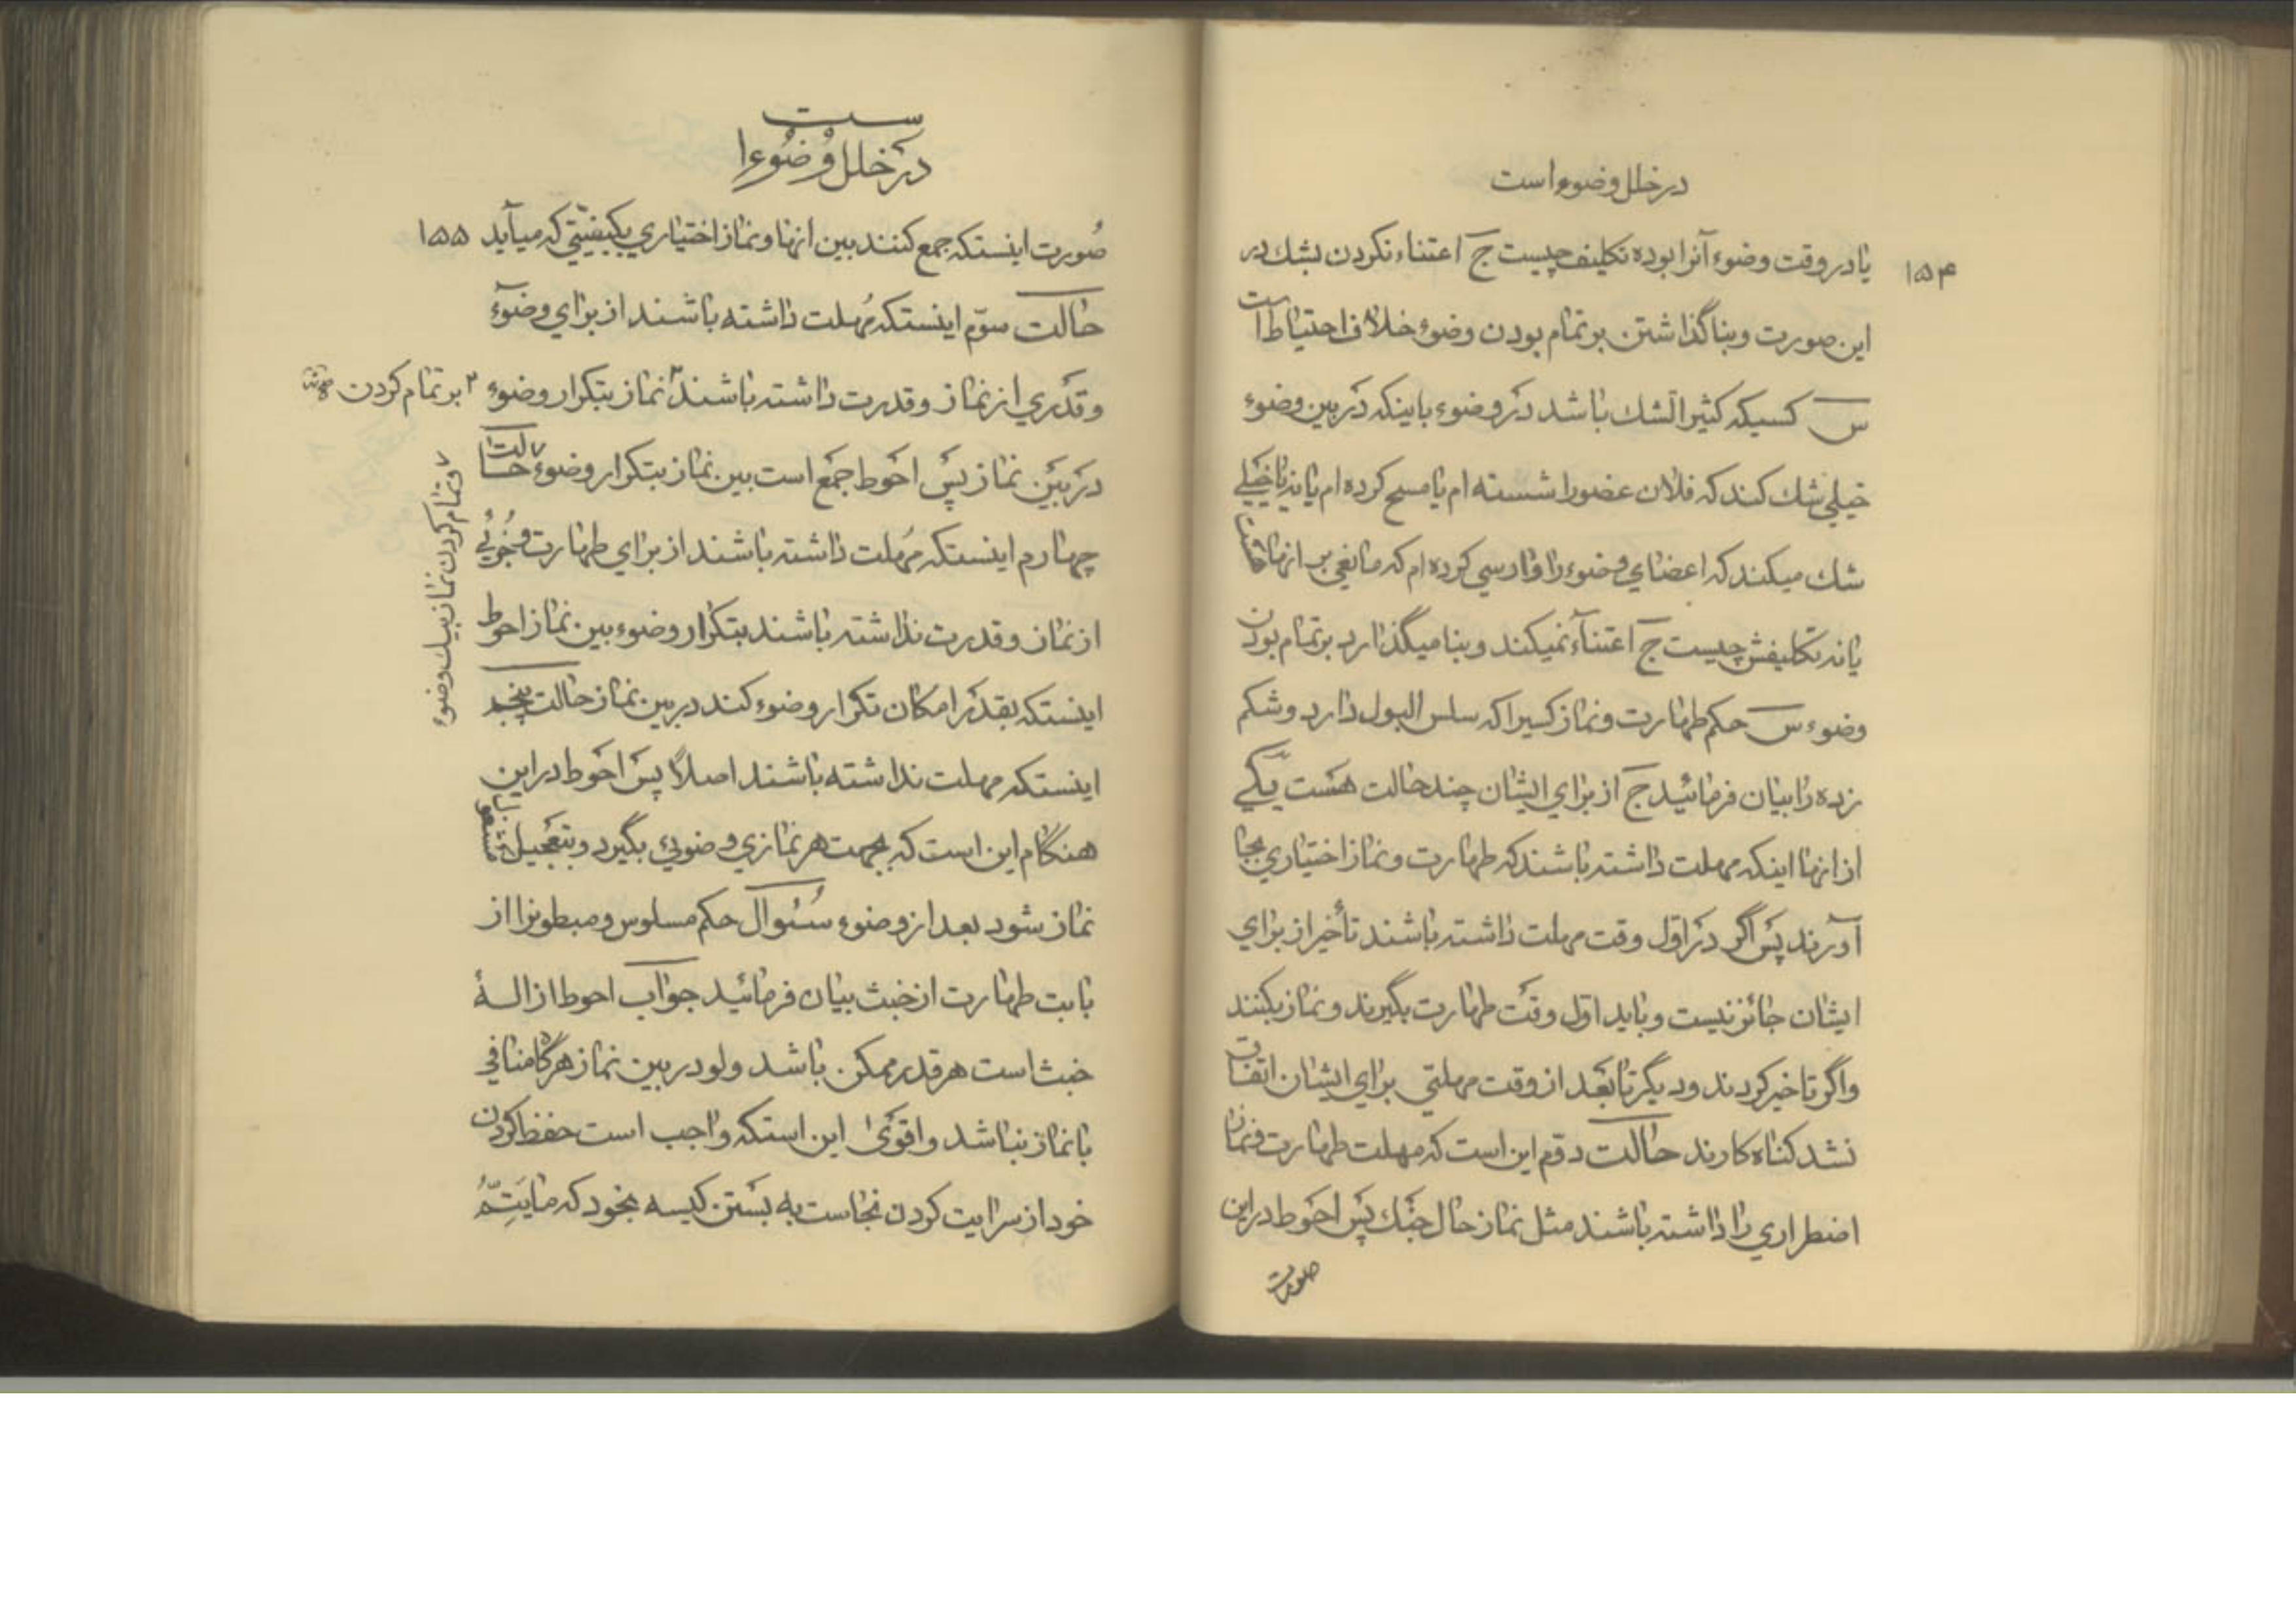 در خلل وضوء است
۱۵۴
یا در وقت وضوء آنرا بوده تکلیف چیست ج اعتناء نکردن بشك در
این صورت و بنا گذاشتن بر تمام بودن وضوء خلاف احتیاط است
س کسیکه کثیر الشك باشد در وضوء باینکه در بین وضوء
خیلی شك کند که فلان عضو را شسته ام یا مسح کرده ام یا نه یا خیلی
شك میکند که اعضای وضوء را وارسی کرده ام که مانعی بر انها
یا نه تکلیفش چیست ج اعتنآء نمیکند و بنا میگذارد بر تمام بودن
وضوء س حکم طهارت و نماز کسیرا که سلس البول دارد و شکم
زده را بیان فرمائید ج از برای ایشان چند حالت هست یکی
از انها اینکه مهلت داشته باشند که طهارت و نماز اختیاری بجا
آورند پس اگر در اول وقت مهلت داشته باشند تأخیر از برای
ایشان جائز نیست و باید اول وقت طهارت بگیرند و نماز بکنند
و اگر تاخیر کردند و دیگر تا بعد از وقت مهلتی برای ایشان اتفاق
نشد کناه کارند حالت دوّم این است که مهلت طهارت و نماز
اضطراری را داشته باشند مثل نماز حال جنك پس احوط در این
صورت
در خلل وضوء است
۱۵۵
صورت اینستکه جمع کنند بین انها و نماز اختیاری بکیفیّتی که میآید
حالت سوّم اینستکه مُهلت داشته باشند از برای وضوء
و قدری از نماز و قدرت داشته باشند ۳ نماز بتکرار وضوء
۳ بر تمام کردن
در بین نماز پس احوط جمع است بین نماز بتکرار وضوء ۷ حالت
۷ و تمام کردن نماز بیك وضوء
چهارم اینستکه مُهلت داشته باشند از برای طهارت و جُزئی
از نماز و قدرت نداشته باشند بتکرار وضوء بین نماز احوط
اینستکه بقدر امکان تکرار وضوء کند در بین نماز حالت پنجم
اینستکه مهلت نداشته باشند اصلاً پس احوط در این
هنگام این است که بجهت هر نمازی وضوئی بگیرد و بتعجیل مشغول
نماز شود بعد از وضوء سئوال حکم مسلوس و مبطونرا از
بابت طهارت از خبث بیان فرمائید جواب احوط ازالهٔ
خبث است هر قدر ممکن باشد ولو در بین نماز هرگاه منافی
با نماز نباشد و اقوی این استکه واجب است حفظ کردن
خود از سرایت کردن نجاست به بستن کیسه بخود که ما یَتِمُّ